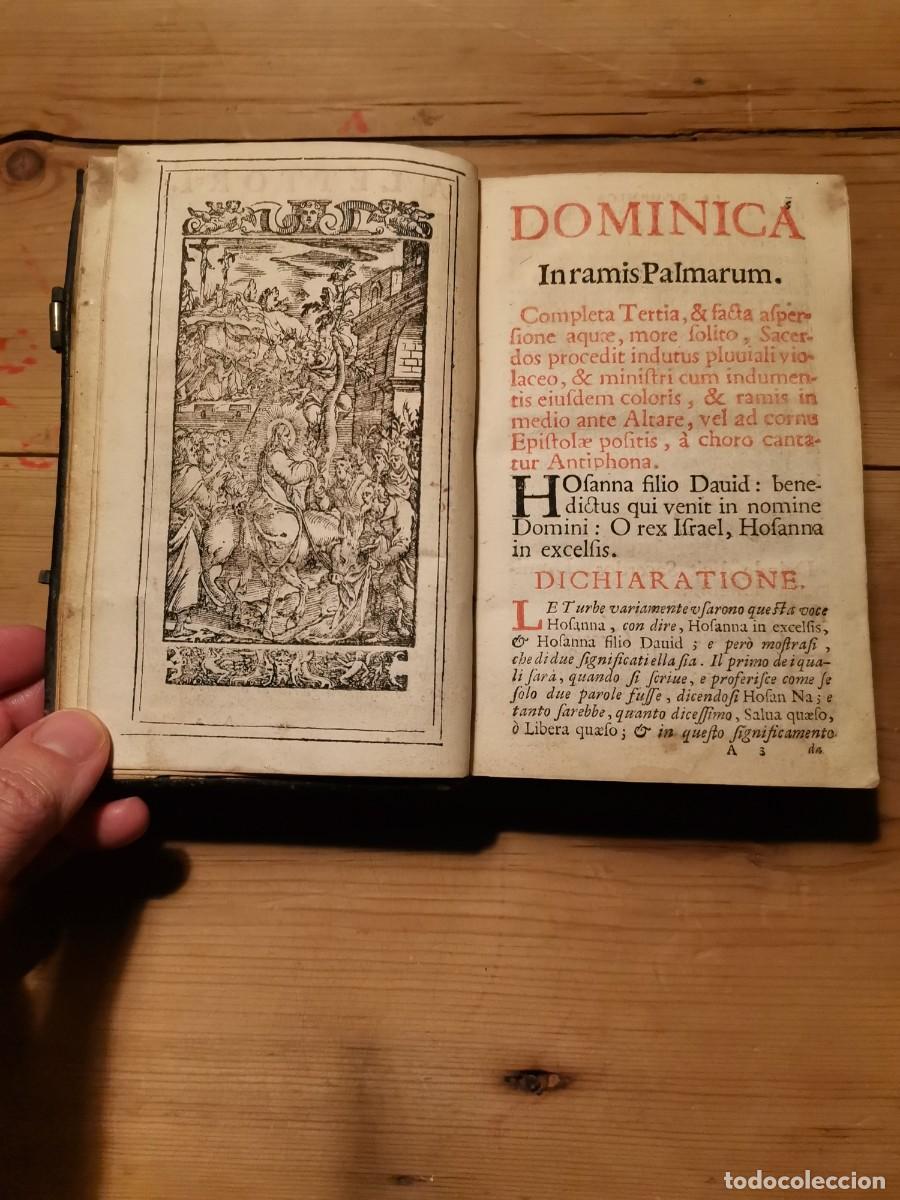 5
DOMINICA
In ramis Palmarum.
Completa Tertia, & facta asper-
ſione aquæ, more ſolito, Sacer-
dos procedit indutus pluuiali vio-
laceo, & miniſtri cum indumen-
tis eiuſdem coloris, & ramis in
medio ante Altare, vel ad cornu
Epiſtolæ poſitis, à choro canta-
tur Antiphona.
HOſanna filio Dauid: bene-
dictus qui venit in nomine
Domini: O rex Iſrael, Hoſanna
in excelſis.
DICHIARATIONE.
LE Turbe variamente vſarono queſta voce
Hoſanna, con dire, Hoſanna in excelſis,
& Hoſanna filio Dauid; e però moſtraſi,
che di due ſignificati ella ſia. Il primo de i qua-
li ſarà, quando ſi ſcriue, e proferiſce come ſe
ſolo due parole fuſſe, dicendoſi Hoſan Na; e
tanto ſarebbe, quanto diceſſimo, Salua quæſo,
ò Libera quæſo; & in queſto ſignificamento
A 3 da
todocoleccion